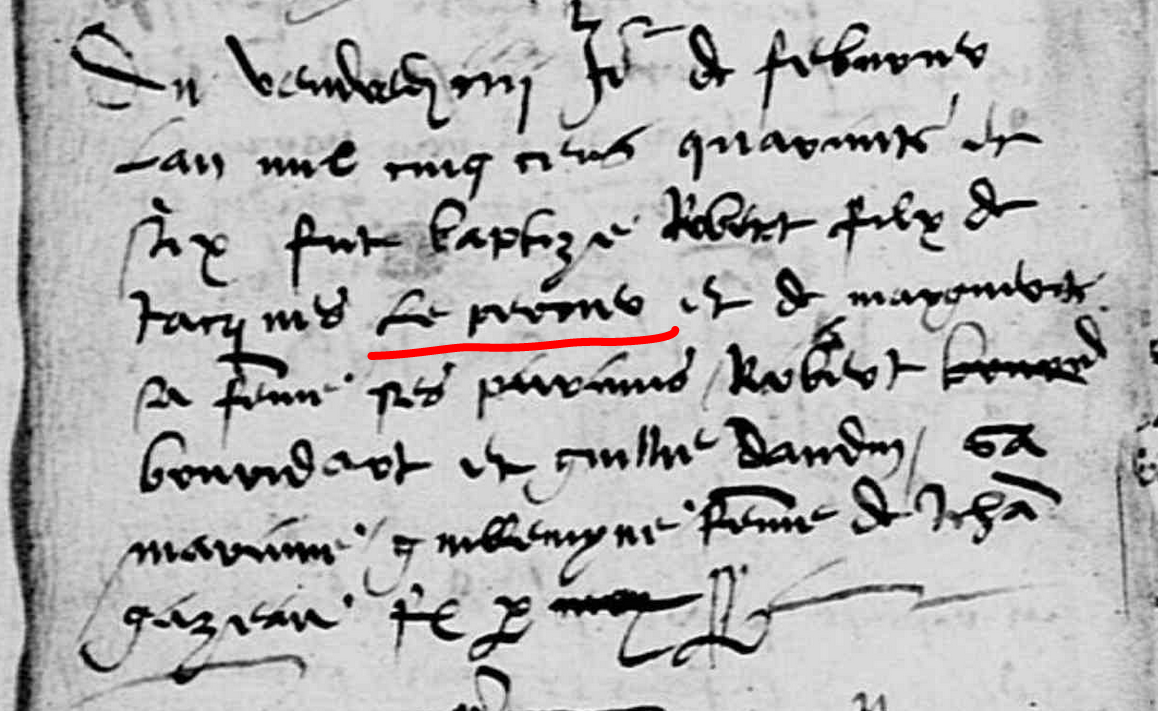 Du vendredi iiii Jr de febvrier
Lan mil cinq cens quarante et
six fut baptizé Robert filx de
Jacques Le et de marguerite
sa femme ses parains Robert
bourdact et guillme Daudin sa
maraine guillemyne femme de Jehã
gazeau ft p